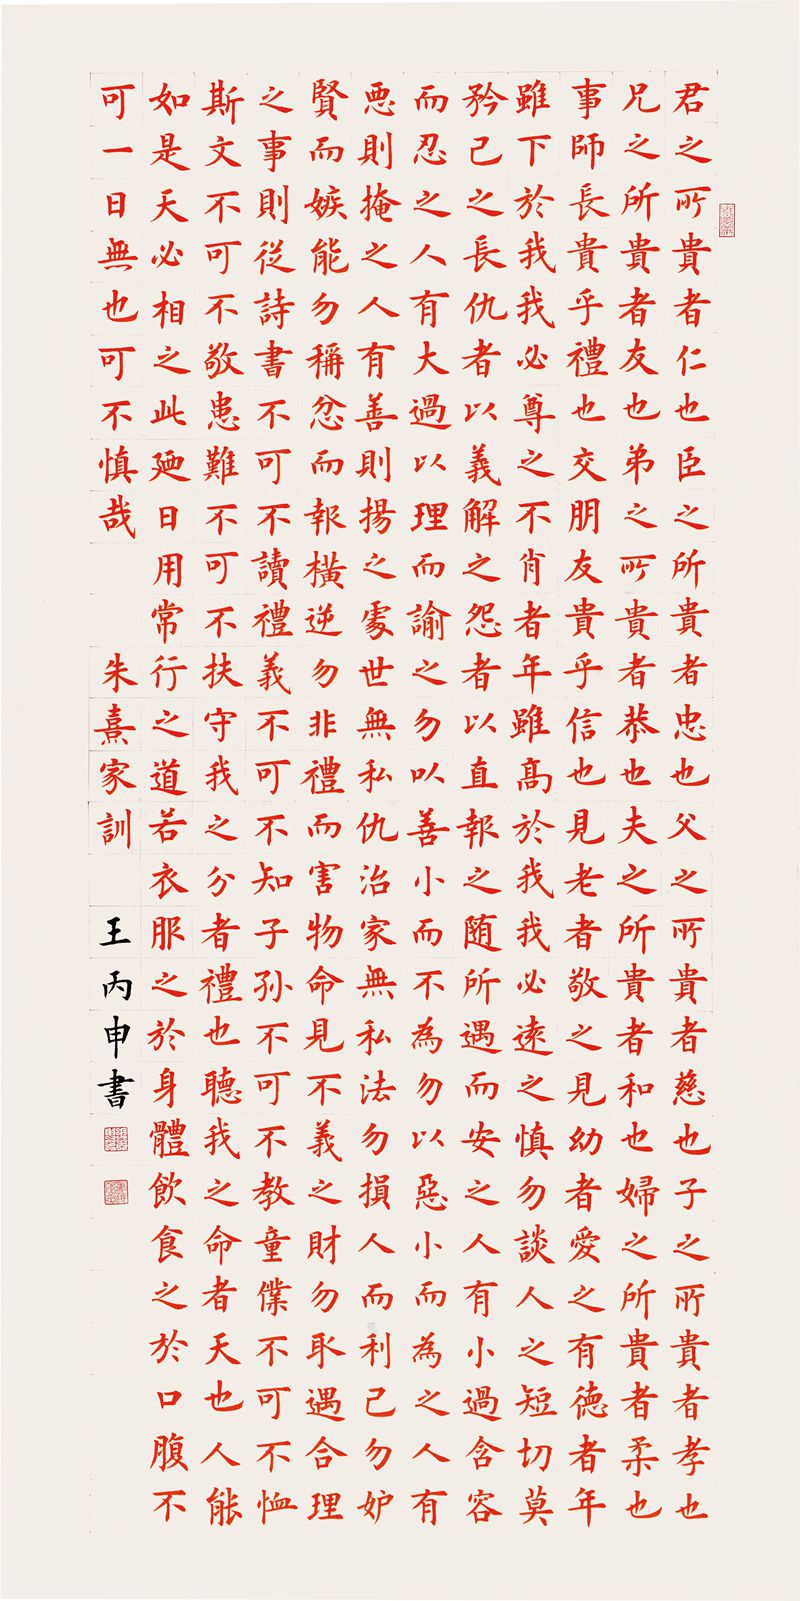 君之所貴者仁也臣之所貴者忠也父之所貴者慈也子之所貴者孝也
兄之所貴者友也弟之所貴者恭也夫之所貴者和也婦之所貴者柔也
事師長貴乎禮也交朋友貴乎信也見老者敬之見幼者愛之有德者年
雖下於我我必尊之不肖者年雖高於我我必遠之慎勿談人之短切莫
矜己之長仇者以義解之怨者以直報之随所遇而安之人有小過含容
而忍之人有大過以理而諭之勿以善小而不為勿以惡小而為之人有
悪則掩之人有善則揚之處世無私仇治家無私法勿損人而利己勿妒
賢而嫉能勿稱忿而報橫逆勿非禮而害物命見不義之財勿取遇合理
之事則從詩書不可不讀禮義不可不知子孙不可不教童僕不可不恤
斯文不可不敬患難不可不扶守我之分者禮也聽我之命者天也人能
如是天必相之此廼日用常行之道若衣服之於身體飲食之於口腹不
可一日無也可不慎哉 朱熹家訓 王丙申書